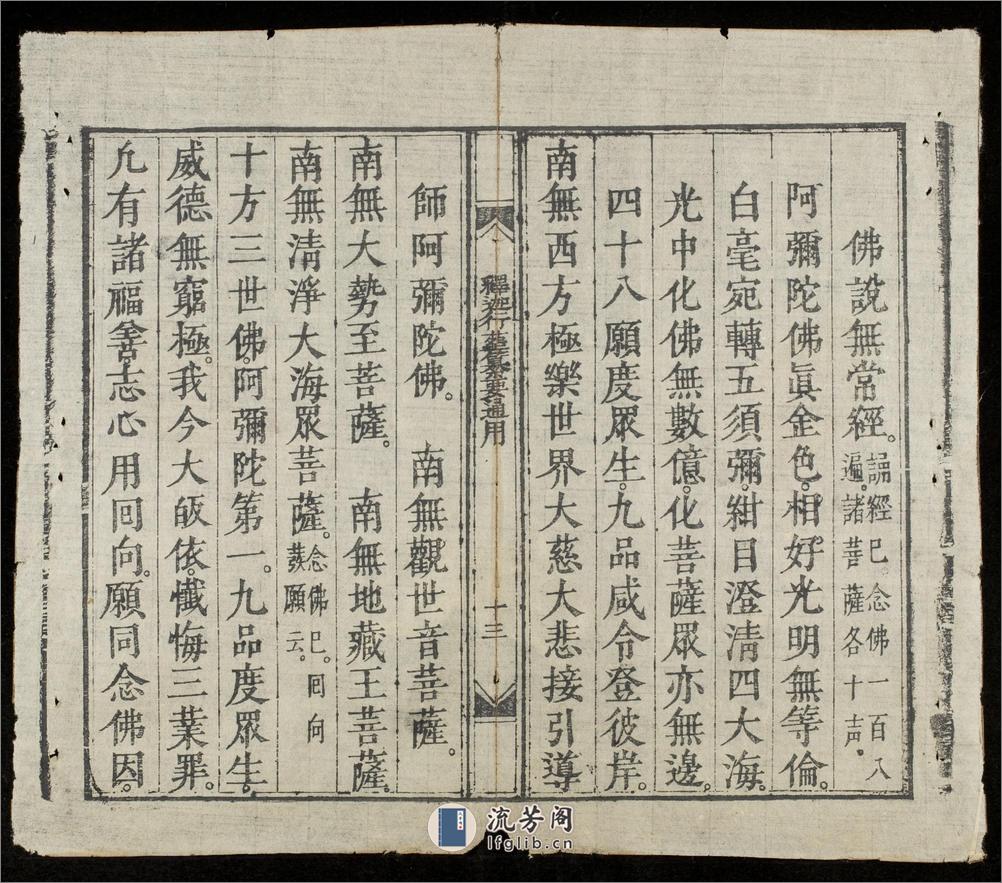 佛說無常經。誦經已。念佛一百八遍。諸菩薩各十声。
阿彌陀佛眞金色。相好光明無等倫。
白毫宛轉五須彌。紺目澄清四大海。
光中化佛無數億。化菩薩眾亦無邊。
四十八願度眾生。九品咸令登彼岸。
南無西方極樂世界大慈大悲接引導
釋迦行 通用
十三
師阿彌陀佛。 南無觀世音菩薩。
南無大勢至菩薩。 南無地藏王菩薩。
南無清淨大海眾菩薩。念佛已。回向發願云。
十方三世佛。阿彌陀第一。九品度眾生。
威德無窮極。我今大皈依。懺悔三業罪。
凢有諸福善。志心用回向。願同念佛因。
流芳阁
lfglib.cn